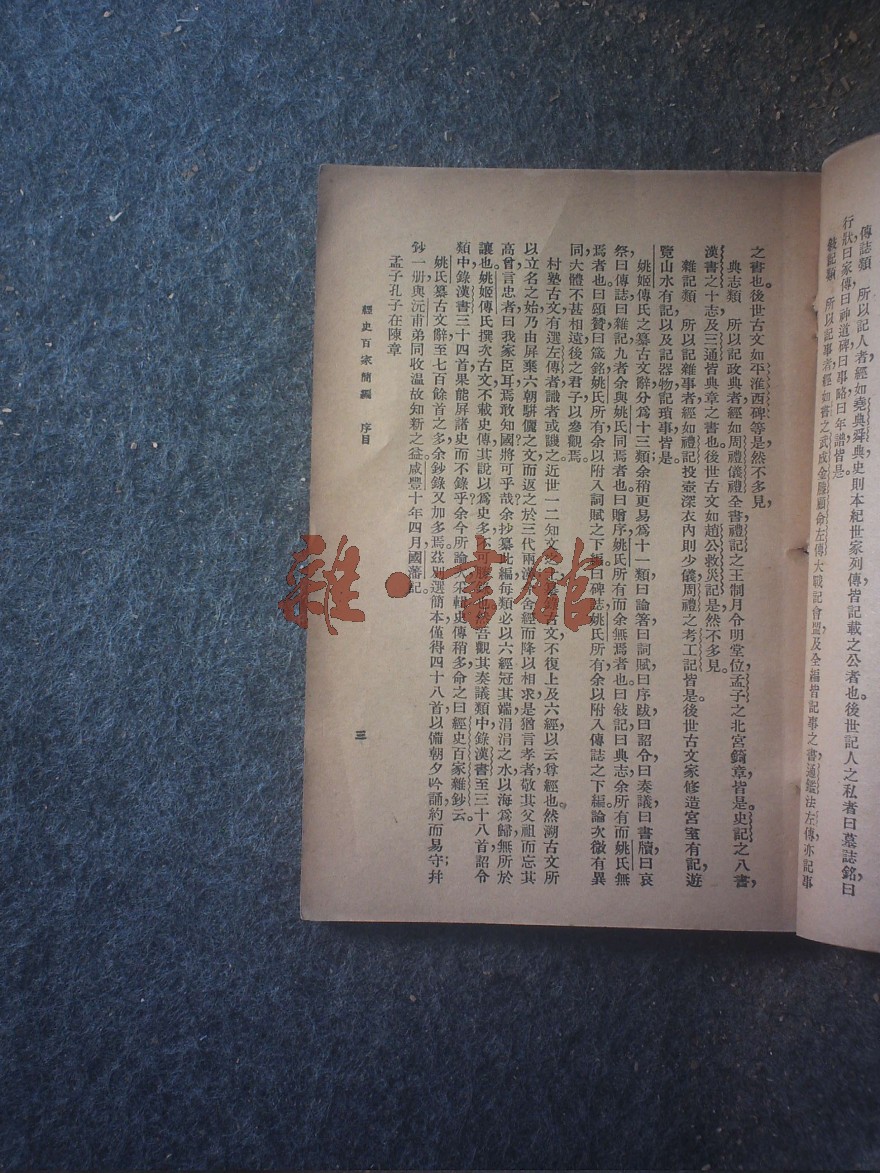 傳誌類　所以記人者，經如堯典舜典，史則本紀世家列傳，皆記載之公者也。後世記人之私者，曰墓誌銘，曰
行狀，曰家傳，曰神道碑，曰事略，曰年譜皆是。
敍記類　所以記事者，經如書之武成金縢顧命，左傳大戰記會盟及全編皆記事之書，通鑑法左傳，亦記事
之書也。後世古文如平淮西碑等是，然不多見。
典志類　所以記政典者，經如周禮儀禮全書，禮記之王制月令明堂位，孟子之北宮錡章皆是。史記之八書，
漢書之十志，及三通，皆典章之書也。後世古文如趙公救災記是，然不多見。
雜記類　所以記雜事者，經如禮記投壺深衣內則少儀，周禮之考工記皆是。後世古文家修造宮室有記，遊
覽山水有記，以及記器物記瑣事皆是。
姚姬傳氏之纂古文辭，分爲十三類；余稍更易爲十一類，曰論著，曰詞賦，曰序跋，曰詔令，曰奏議，曰書牘，曰哀
祭，曰傳誌，曰雜記，九者余與姚氏同焉者也。曰贈序，姚氏所有而余無焉者也。曰敍記，曰典志，余所有而姚氏無
焉者也。曰頌贊，曰箴銘，姚氏所有，余以附入詞賦之下編。曰碑誌，姚氏所有，余以附入傳誌之下編。論次微有異
同，大體不甚相遠，後之君子以參觀焉。
村塾古文有選左傳者，識者或譏之。近世一二知文之士，纂錄古文，不復上及六經，以云尊經也。然溯古文所
以立名之始，乃由屏棄六朝駢儷之文，而返之於三代兩漢，今舍經而降以相求，是猶言孝者敬其父祖而忘其
高曾，言忠者曰我家臣耳，焉敢知國，將可乎哉？余抄纂此編，每類必以六經冠其端，涓涓之水，以海爲歸，無所於
讓也。姚姬傳氏撰次古文，不載史傳，其說以爲史多不可勝錄也。然吾觀其奏議類中，錄漢書至三十八首，詔令
類中錄漢書三十四首，果能屏諸史而不錄乎？余今所論次，采輯史傳稍多，命之曰經史百家雜鈔云。
姚氏纂古文辭至七百餘首之多，余鈔錄又加多焉。茲別選簡本，僅得四十八首，以備朝夕吟誦，約而易守；幷
鈔一册與沅甫弟同收温故知新之益。咸豐十年四月，國藩記。
孟子孔子在陳章
經史百家簡編　序目
三
雜·書館